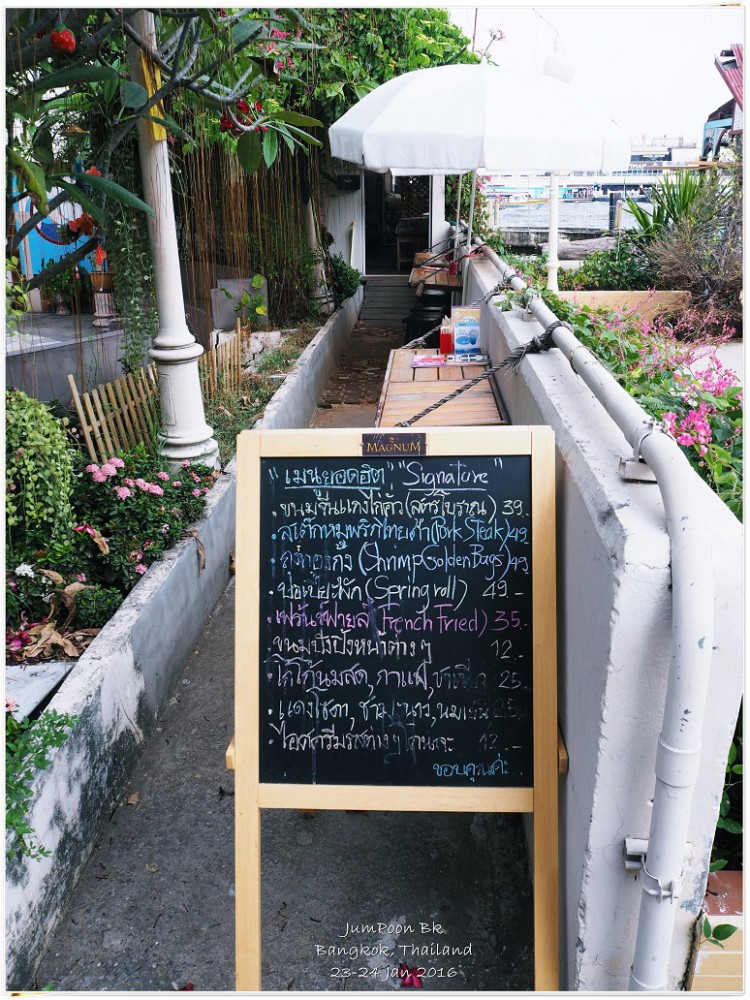 MAGNUM
"เมนูยอดฮิต" "Signature"
ขนมจีนแกงไก่คั่ว (สูตรโบราณ) 39.-
สเต็กหมูพริกไทยดำ (Pork Steak) 49.-
ถุงทองกุ้ง (Shrimp Golden Bags) 49
ปอเปี๊ยะผัก (Spring roll) 49 -
เฟร้นช์ฟายส์ (French Fried) 35.-
ขนมปังปิ้งหน้าต่างๆ 12.-
โกโก้นมสด, กาแฟ, ชาเขียว 25.
แดงโซดา, ชามะนาว, นมเย็น 25.-
ไอศครีมรสต่างๆ 12.-
ขอบคุณค่ะ...
JumPoon Bk
Bangkok, Thailand
23-24 Jan 2016